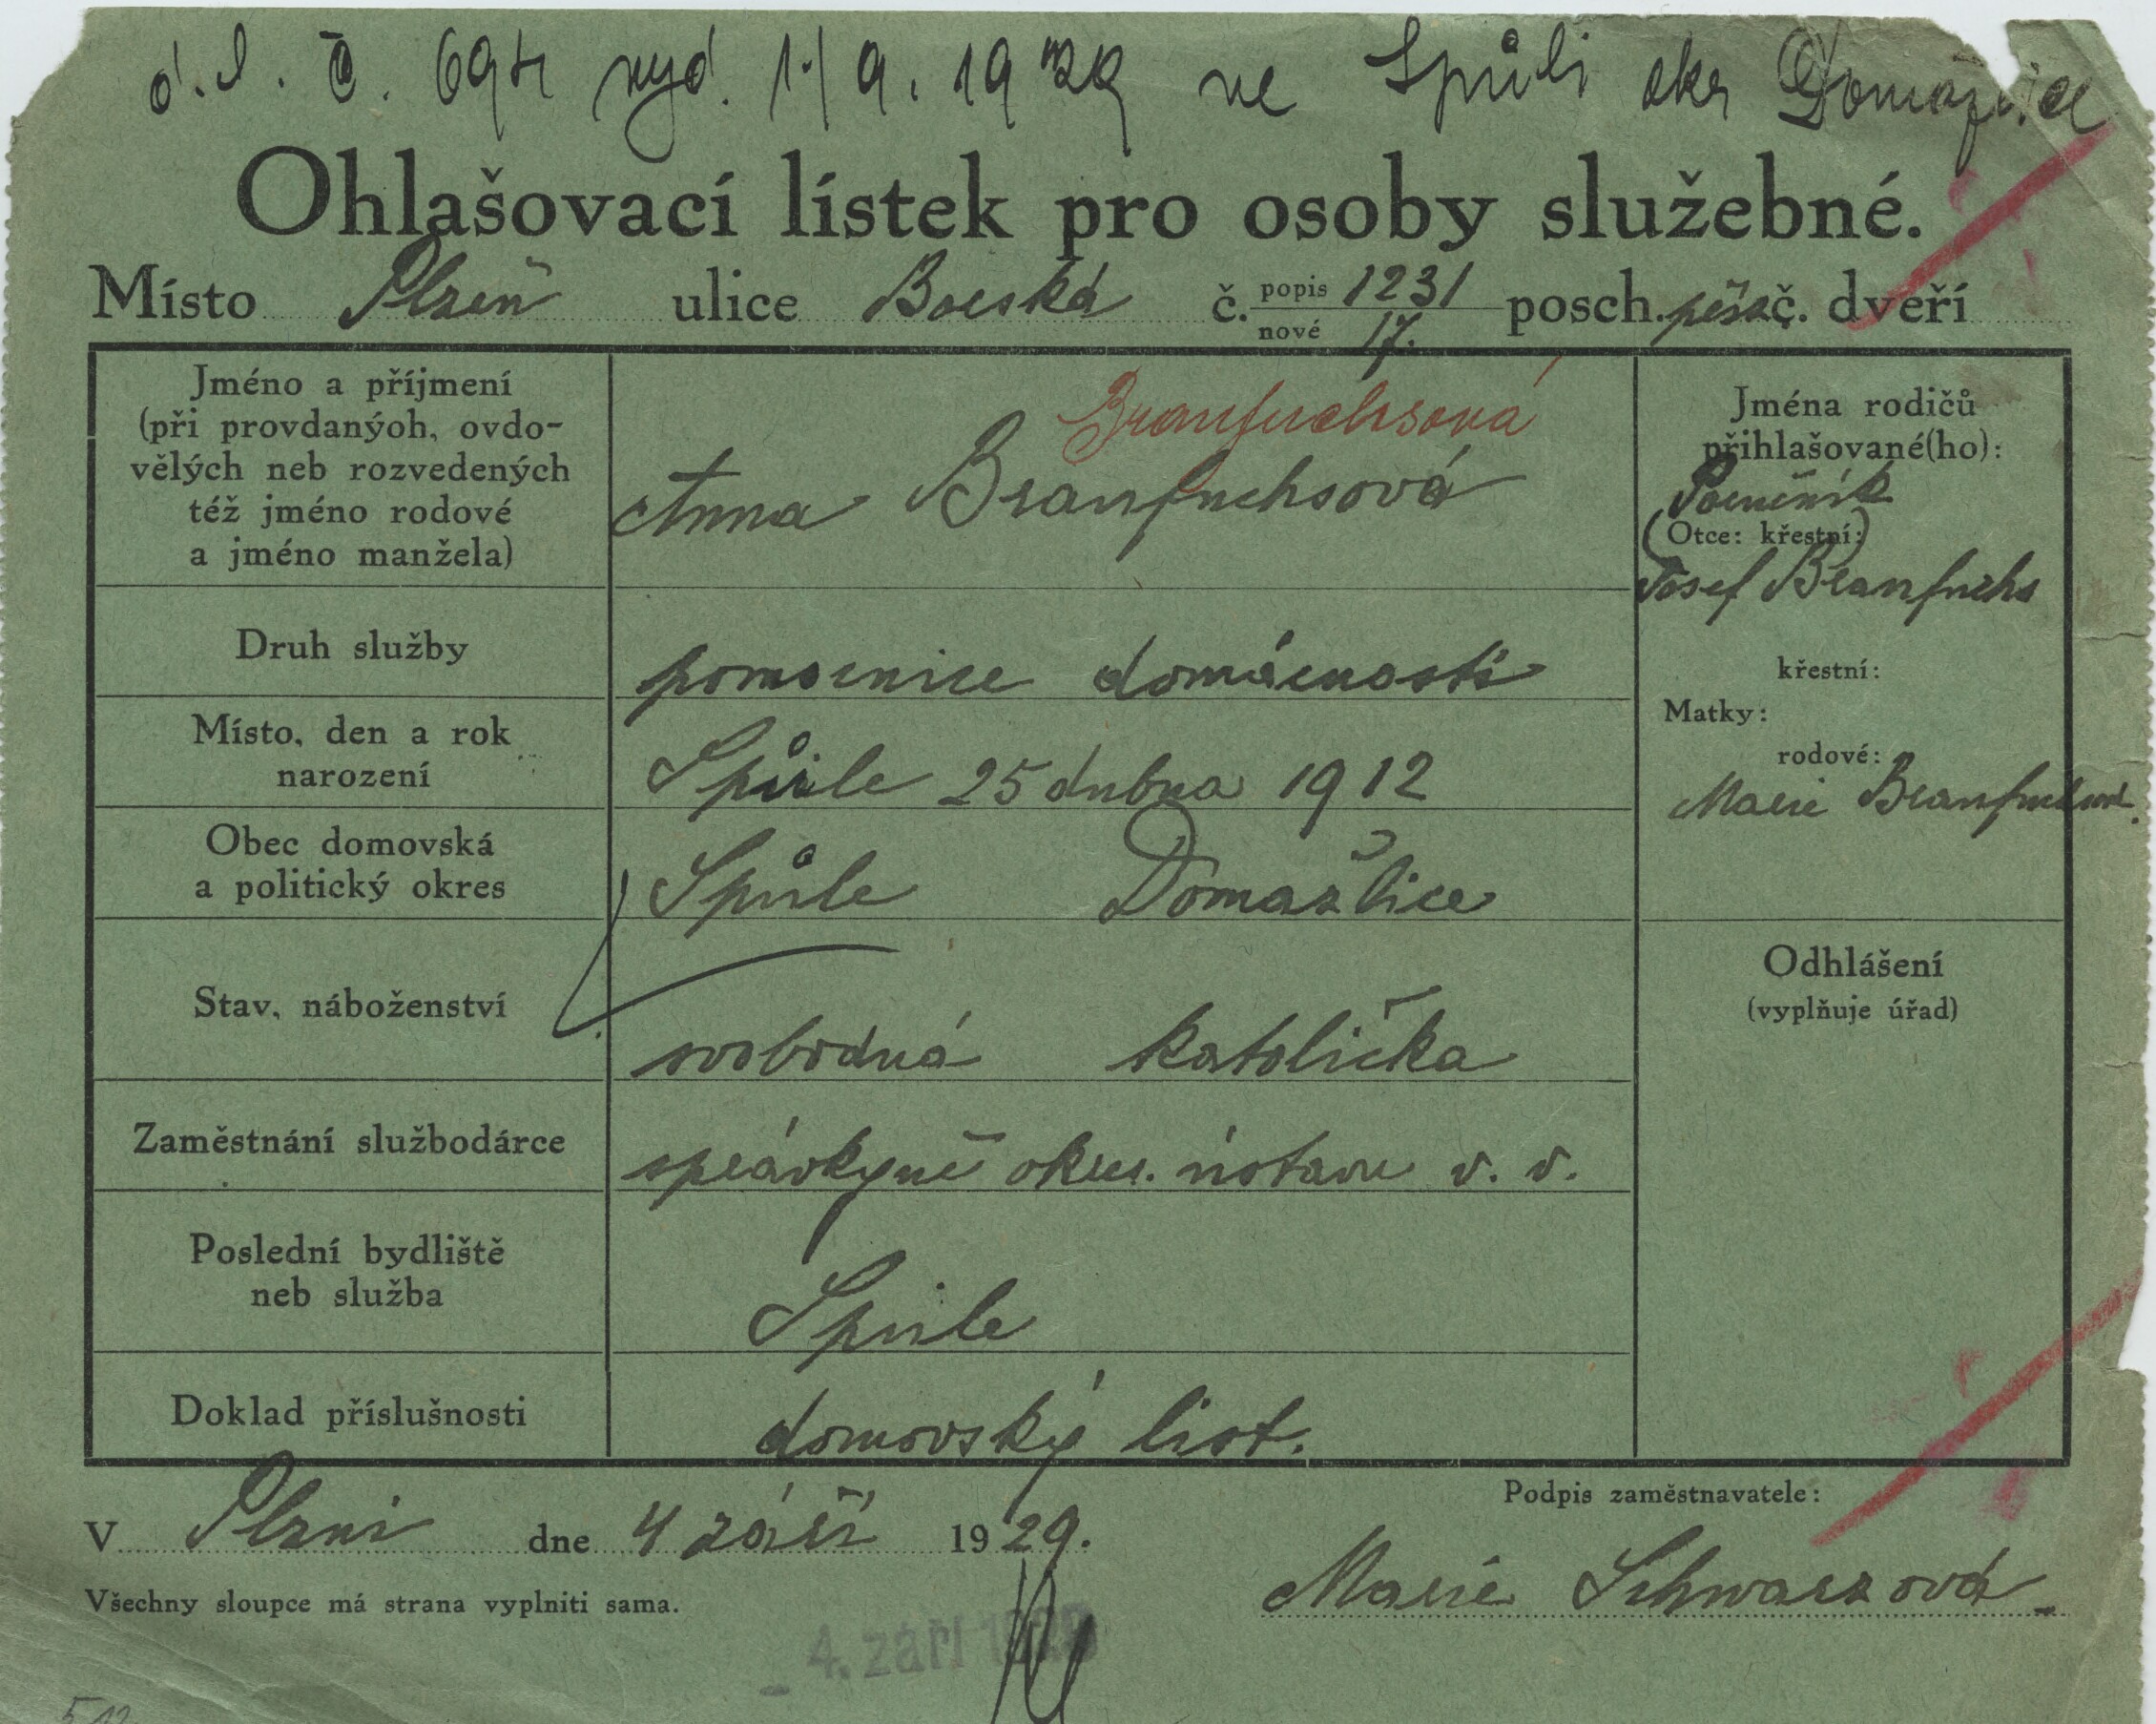 d. l. č. 694 vyd. 1/9. 1929 ve Spůli okr Domažlice
Ohlašovací lístek pro osoby služebné.
Místo Plzeň ulice Borská č. popis 1231 posch. č. dveří
nové 17.
Jméno a příjmení
(při provdanýoh, ovdo-
vělých neb rozvedených
též jméno rodové
a jméno manžela)
Branfuchsová
Anna Branfuchsová
Jména rodičů
přihlašované(ho):
(Otce: křestní:)
Josef Branfuchs
křestní:
Matky:
rodové:
Marie
Druh služby
pomocnice domácnosti
Místo, den a rok
narození
Spůle 25 dubna 1912
Obec domovská
a politický okres
Spůle Domažlice
Stav, náboženství
svobodná katolička
Odhlášení
(vyplňuje úřad)
Zaměstnání službodárce
správkyně okres. ústavu v. v.
Poslední bydliště
neb služba
Spůle
Doklad příslušnosti
domovský list.
V Plzni dne 4 září 1929.
Podpis zaměstnavatele:
Marie Schwarzová
Všechny sloupce má strana vyplniti sama.
4. září